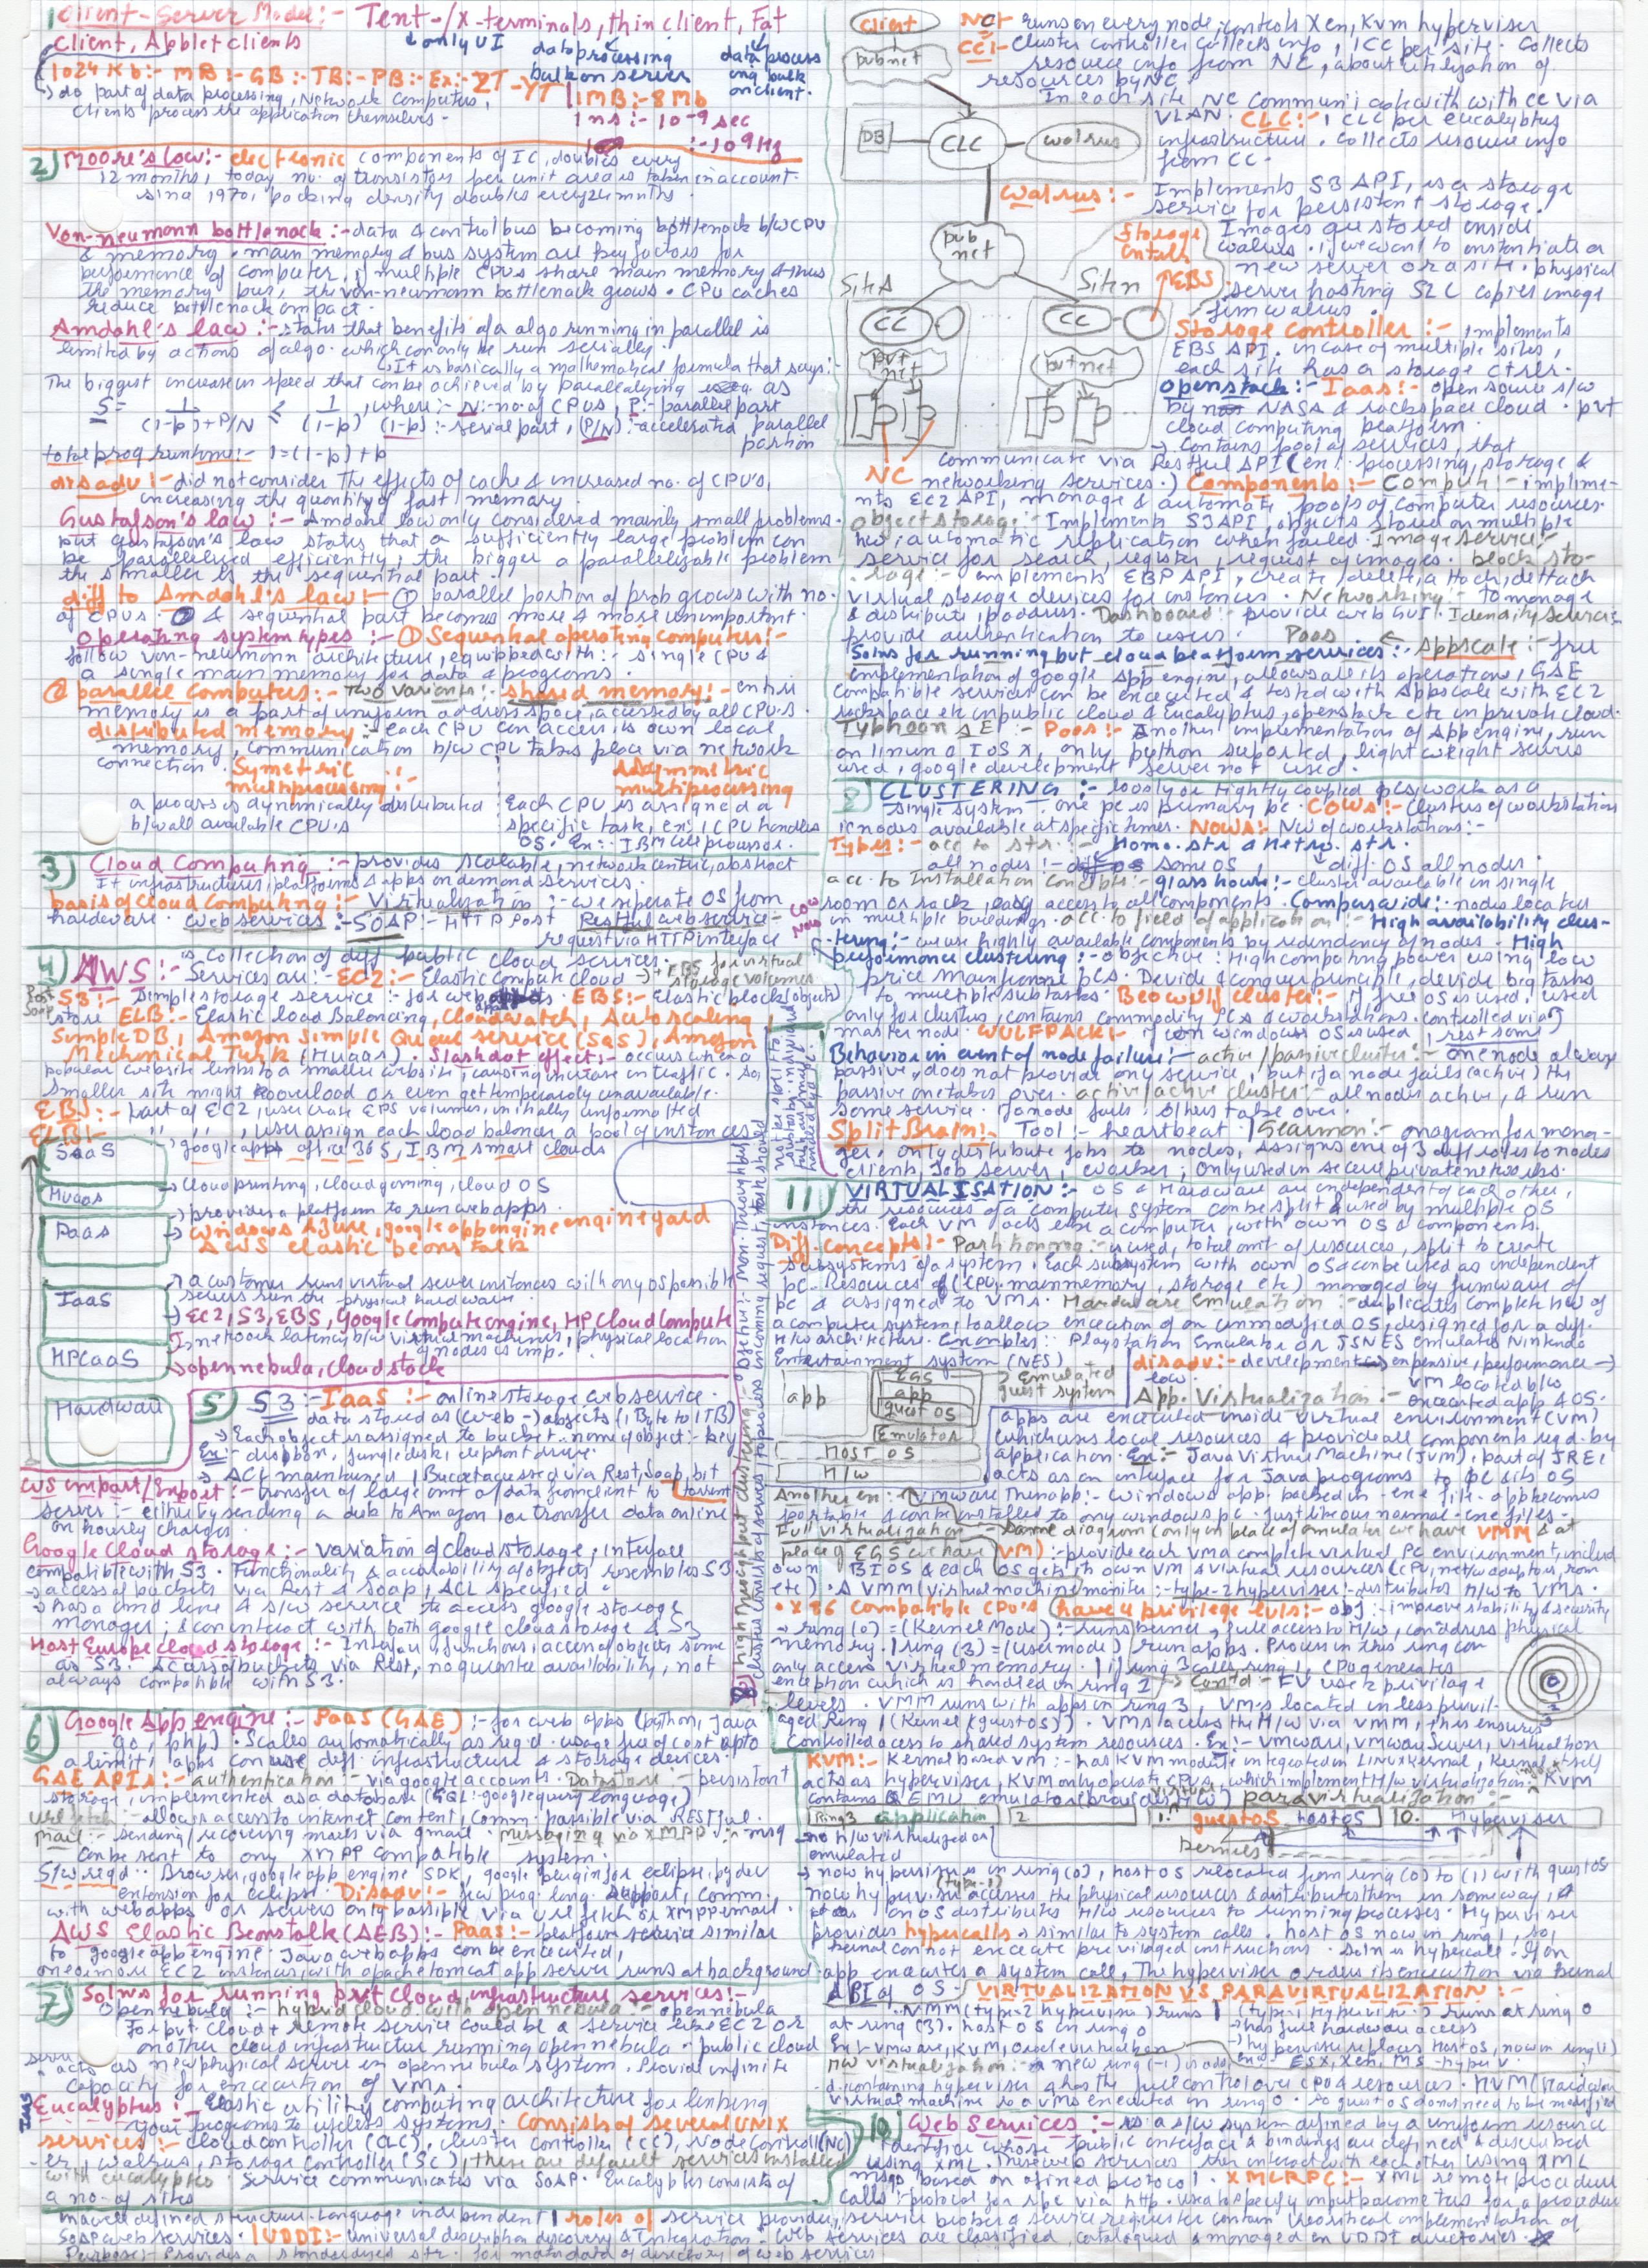 Client-Server Model:- Text-/X-terminals, thin client, Fat
Client, Applet clients
only UI
data processing
bulk on server
data processing bulk on client.
1024 Kb:- MB:- GB:- TB:- PB:- Ex:- ZT-YT
1MB:- 8Mb
do part of data processing, Network Computers,
clients process the application themselves.
1ns:- 10-9 sec
:-10 9Hz
2) Moore's law:- electronic components of IC, doubles every
12 months, today no. of transistors per unit area is taken in account
since 1970, packing density doubles every 24 mnths.
Von-neumann bottleneck:- data & control bus becoming bottleneck b/w CPU
& memory. main memory & bus system are key factors for
performance of computer, if multiple CPUs share main memory & thus
the memory bus, the von-neumann bottleneck grows. CPU caches
reduce bottleneck impact.
Amdahl's law:- states that benefits of a algo running in parallel is
limited by actions of algo. which can only be run serially.
It is basically a mathematical formula that says:-
The biggest increase in speed that can be achieved by parallelizing as
S = 1/(1-p)+P/N ≤ 1/(1-p), where:- N:- no. of CPUs, P:- parallel part
(1-p):- serial part, (P/N):- accelerated parallel
portion
total prog runtime:- 1=(1-p)+p
disadv:- did not consider the effects of cache & increased no. of CPU's,
increasing the quantity of fast memory.
Gustafson's law:- Amdahl law only considered mainly small problems.
but Gustafson's law states that a sufficiently large problem can
be parallelised efficiently; the bigger a parallelizable problem
the smaller is the sequential part.
diff to Amdahl's law:- ① parallel portion of prob grows with no.
of CPUs. ② & sequential part becomes more & more unimportant.
Operating system types:- ① Sequential operating computer:-
follow von-neumann architecture, equipped with:- single CPU &
a single main memory for data & programs.
② parallel Computers:- Two variants:- shared memory:- entire
memory is a part of uniform address space, accessed by all CPU's.
distributed memory:- each CPU can access is own local
memory, communication b/w CPU takes place via network
connection.
Symetric
multiprocessing:-
Asymmetric
multiprocessing
a process is dynamically distributed
b/w all available CPU's
Each CPU is assigned a
specific task, ex: 1 CPU handles
OS. Ex:- IBM cell processor.
3) Cloud Computing:- provides scalable, network centric, abstract
IT infrastructures, platforms & apps on demand services.
basis of cloud Computing:- Virtualization:- we seperate OS from
hardware. web services:- SOAP:- HTTP Post Restful web service:-
request via HTTP interface
4) AWS:- is collection of diff public cloud services.
Services are:- EC2:- Elastic Compute cloud → + EBS for virtual
storage volumes
S3:- simple storage service:- for web apps. EBS:- Elastic block (objects)
store ELB:- Elastic load Balancing, Cloudwatch, Auto scaling
Simple DB, Amazon Simple Queue service (SQS), Amazon
Mechanical Turk (HuaaS). Slashdot effect:- occurs when a
popular website links to a smaller website, causing increase in traffic. so,
smaller site might overload or even get temporarly unavailable.
EBS:- part of EC2, user create EPS volumes, initially unformatted
ELB:- " " ", user assign each load balancer a pool of instances
SaaS
→ google apps office 365, IBM smart clouds
HuaaS
→ cloud printing, cloud gaming, cloud OS
PaaS
→ provides a platform to run web apps.
→ windows Azure, google app engine engine yard
AWS elastic beans talk
IaaS
→ a customer runs virtual sever instances with any OS possible
servers run the physical hardware.
→ EC2, S3, EBS, Google Compute engine, HP Cloud Compute
HPCaaS
network latency b/w virtual machines, physical location
of nodes is imp.
→ opennebula, cloud stack
Hardware
5) S3:- IaaS:- online storage web service.
data stored as (web-) objects (1 Byte to 1TB)
→ Each object is assigned to bucket. name of object:- key
Ex:- dropbox, jungledisk, elephant drive.
→ ACL maintained, Bucket accessed via Rest, Soap, bit
torrent
AWS import/Export:- transfer of large amt of data from client to
server:- either by sending a disk to Amazon or transfer data online
on hourly charges.
Google Cloud storage:- variation of cloud storage, interface
compatible with S3. Functionality & availability of objects resembles S3
→ access of buckets via Rest & soap, ACL specified
→ has a cmd line & s/w service to access google storage
manager, & can interact with both google cloud storage & S3
Host Europe cloud storage:- Interface, functions, access of objects same
as S3. access of buckets via Rest, no guarantee availability, not
always compatible with S3.
6) Google App engine:- PaaS (GAE):- for web apps (python, Java
go, php). Scales automatically as reqd. usage free of cost upto
a limit, apps can use diff. infrastructure & storage devices.
GAE APIs:- authentication:- via google accounts. Datastore:- persistent
storage, implemented as a database (GQL:- google query language)
url fetch:- allows access to internet content, Comm. possible via RESTful.
mail:- sending/receiving mails via gmail. messaging via XMPP:- msg
can be sent to any XMPP compatible system.
S/w reqd:- Browser, google app engine SDK, google plugin for eclipse, pydev
extension for eclipse. Disadv:- few prog. lang. support, Comm.
with webapps or servers only possible via url fetch or xmpp email.
AWS Elastic Beanstalk (AEB):- PaaS:- platform service similar
to google app engine. Java web apps can be executed,
one or more EC2 instances, with apache tomcat app server runs at background
7) Solns for running pvt cloud infrastructure services:-
Opennebula:- hybrid cloud with opennebula:- opennebula
for pvt. cloud + remote service could be a service like EC2 or
another cloud infrastructure running opennebula. public cloud
acts as new physical server in opennebula system. Provide infinite
capacity for execution of VMs.
Eucalyptus:- Elastic utility computing architecture for linking
your programs to useful systems. Consists of several UNIX
services:- cloud controller (CLC), cluster controller (CC), Node Controll(NC)
er, walrus, storage controller (SC), these are default services installed
with eucalyptus. service communicates via SOAP. Eucalyptus consists of
a no. of sites
client
pubnet
DB
CLC
walrus
pub
net
Site A
Site n
CC
CC
pvt
net
pvt net
NC
Storage
Cntrllr
EBS
NC:- runs on every node, controls Xen, Kvm hyperviser
CC:- Cluster controller collects info, 1 CC per site. collects
resource info from NC, about utilization of
resources by NC.
In each site NC communicate with with CC via
VLAN. CLC:- 1 CLC per eucalyptus
infrastructure. collects resource info
from CC.
Walrus:- Implements S3 API, is a storage
service for persistent storage.
Images are stored inside
walrus. if we want to instantiate a
new server on a site. physical
server hosting SLC copies image
from walrus.
Storage controller:- implements
EBS API. in case of multiple sites,
each site has a storage ctrler.
Openstack:- IaaS:- open source s/w
by NASA & rackspace cloud. pvt
cloud computing platform.
→ Contains pool of services, that
communicate via Restful API (ex: processing, storage &
networking services.) Components:- Compute:- impleme-
nts EC2 API, manage & automate pools of computer resources.
Object storage:- Implements S3 API, objects stored on multiple
hw; automatic replication when failed. Image service:-
service for search, register, request of images. block sto-
rage:- implements EBP API, create, delete, attach, dettach
virtual storage devices for instances. Networking:- to manage
& distribute ip address. Dashboard:- provide web GUI. Idendity service:-
provide authentication to users. Paas ← Appscale:- free
Solns for running pvt cloud platform services:-
implementation of google App engine, allows all its operations, GAE
compatible services can be executed & tested with Appscale with EC2
rackspace etc in public cloud & Eucalyptus, openstack etc in private cloud.
Typhoon AE:- Paas:- Another implementation of App engine, run
on linux & IOS X, only python supported, light weight servers
used, google development server not used.
8) CLUSTERING:- loosly or Highly coupled pcs, work as a
single system. one pc is primary pc. COWs:- clusters of workstation
ie nodes available at specific times. NOWs:- Nw of workstations:-
Types:- acc to str:- Homo. str & Hetro. str.
all nodes:- same OS, diff. OS all nodes.
acc. to Installation concepts:- glass house:- cluster available in single
room or rack, easy access to all components. Campuswide:- nodes located
in multiple buildings. acc. to field of application:- High availability clus-
tering:- we use highly available components by redundency of nodes. High
performance clustering:- objective: High computing power using low
price mainframe pcs. Devide & conquer principle, devide big tasks
to multiple subtasks. Beowulf cluster:- if free OS is used, used
only for cluster, contains commodity PCs & workstations. controlled via
master node. WULFPACK:- if windows OS is used, rest same
Behavior in event of node failure:- active/passive cluster:- one node always
passive, does not provide any service, but if a node fails (active) the
passive one takes over. active/active cluster:- all nodes active, & run
same service. if a node fails, others take over.
Split Brain:- Tool:- heartbeat. Gearman:- anagram for mana-
ger, only distribute jobs to nodes, assigns one of 3 diff roles to nodes
client, Job server, worker; Only used in secure private networks.
11) VIRTUALISATION:- OS & Hardware are independent of each other,
the resources of a computer system can be split & used by multiple OS
instances. Each VM acts like a computer, with own OS & components.
Diff. concepts:- Partitioning:- is used, total amt of resources, split to create
subsystems of a system. Each subsystem with own OS & can be used as independent
pc. Resources of (CPU, main memory, storage etc) managed by firmware of
pc & assigned to VMs. Hardware Emulation:- duplicates complete h/w of
a computer system, to allow execution of an unmodified OS, designed for a diff.
H/w architecture. Examples: Playstation Emulator or JSNES emulates Nintendo
Entertainment system (NES)
disadv:- development expensive, performance
low.
app
EGS
app
guest OS
Emulator
HOST OS
H/w
→ emulated
guest system
App. Virtualization:- VM located b/w
executed app & OS.
apps are executed inside virtual environment (VM)
which uses local resources & provide all components reqd. by
application. Ex:- Java Virtual Machine (JVM), part of JRE,
acts as an interface for Java programs to pc & its OS
Another ex:- VMware Thinapp:- windows app. packed in .exe file. app becomes
portable & can be installed to any windows pc. Just like our normal .exe files.
Full virtualization:- Same diagram (only in place of emulator we have VMM & at
place of EGS we have VM):- provide each vm a complete virtual PC environment, includ
own BIOS & each OS gets its own VM & virtual resources (CPU, net/w adaptors, rom
etc). A VMM (virtual machine moniter:- type-2 hyperviser:- distributes H/w to VMs.
X86 compatible CPU's have 4 privilege lvls:- obj:- improve stability & security
→ ring(0) = (Kernel Mode):- runs kernel, full access to H/w, can address physical
memory. ring(3) = (user mode) run apps. Process in this ring can
only access virtual memory. if ring 3 calls ring 1, CPU generates
exception which is handled in ring 1 → cont'd - FV use 2 privilage
levels. VMM runs with apps in ring 3, VM's located in less privil-
aged Ring 1 (Kernel (guest OS)). VMs access the H/w via VMM, this ensures
controlled access to shared system resources. Ex:- Vmware, vmware server, virtual box
KVM:- Kernel based vm:- has KVM module integrated in LINUX kernel, kernel itself
acts as hyperviser, KVM only operate CPUs, which implement H/w virtualization. KVM
contains QEMU emulator (provides virtual H/w) paravirtualization:-
Ring3 application 2 1. guest OS host OS 0. Hyperviser
→ no H/w virtualized or
emulated
Kernel
→ now hypervisor is in ring(0), host OS relocated from ring(0) to (1) with guest OS
now hyperviser (type-1) accesses the physical resources & distributes them in same way, it
an OS distributes H/w resources to running processes. Hyperviser
provides hypercalls → similar to system calls. host OS now in ring 1, so,
kernel cannot execute previladged instructions. Soln is hypercall. If an
app executes a system call, The hyperviser orders its execution via kernel
API of OS. VIRTUALIZATION VS PARAVIRTUALIZATION:-
VMM (type-2 hyperviser) runs
at ring (3). host OS in ring 0
Ex:- vmware, KVM, Oracle virtualbox
(type-1 hyperviser) runs at ring 0
→ has full hardware access
→ hyperviser replaces Host OS, now in ring(1)
ex:- ESX, Xen, MS-hyper v.
HW virtualization:- A new ring (-1) is adde-
d. containing hyperviser & has the full control over CPU & resources. HVM (Hardware
virtual machine is a VMs executed in ring 0. So guest OS donot need to be modified
10) Web Services:- is a s/w system defined by a uniform resource
identifier whose public interface & bindings are defined & described
using XML. These web services then interact with each other using XML
msgs based on a fined protocol. XMLRPC:- XML remote procedure
calls:- protocol for rpc via http. used to specify input parameters for a procedure
have well defined structure. Language independent roles of service provider, service broker & service requester contain theoritical implementation of
SOAP web services. UDDI:- universal description discovery & Integration. Web services are classified, catalogued & managed in UDDI directories.
Purpose:- Provides a standardised str. for meta data of directory of web services